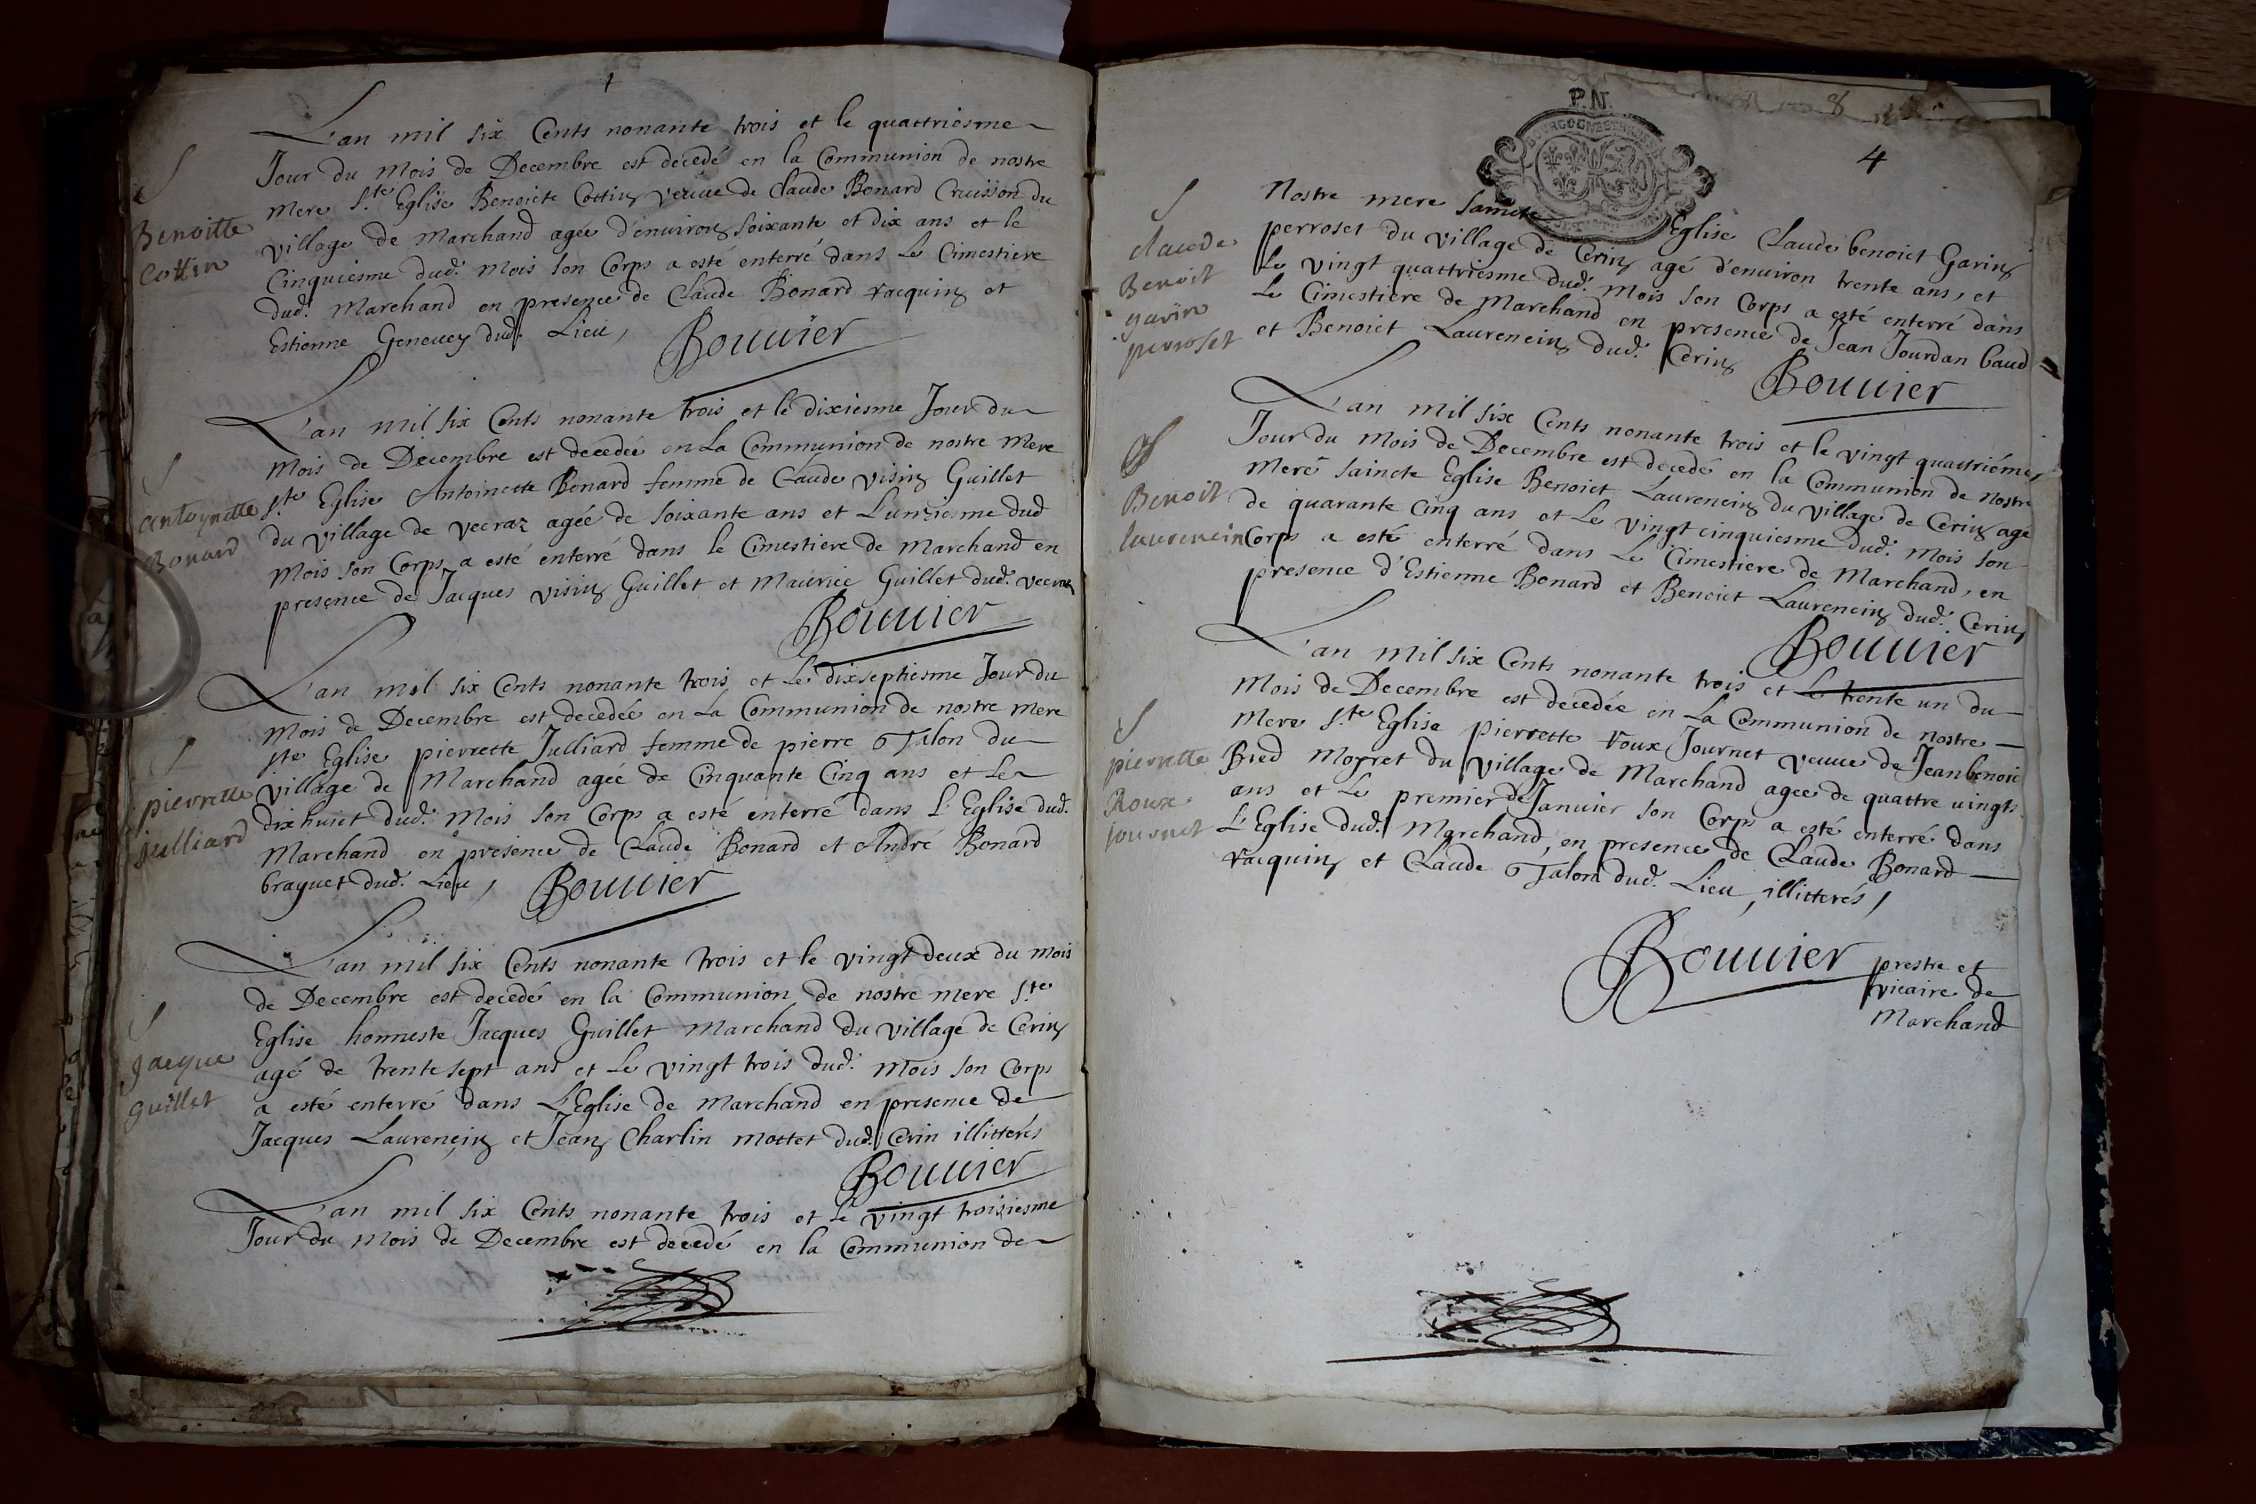 L'an mil six Cents nonante trois et le quattriesme
Jour du Mois de Decembre est decedé en la Communion de nostre
mere S.te Eglise Benoicte Cottin veuue de Claude Bonard Cruisson du
village de Marchand agée d'enuiron soixante et dix ans et le
Cinquiesme dud. Mois son Corps a esté enterré dans Le Cimestiere
dud. Marchand en presence de Claude Bonard racquin et
Estienne Geneuey dud. Lieu,
Bouuier
Benoitte
Cottin
L'an mil six Cents nonante trois et le dixiesme Jour du
Mois de Decembre est decedée en La Communion de nostre Mere
S.te Eglise Antoinette Bonard femme de Claude visin Guillet
du village de vecraz agée de soixante ans et L'unziesme dud
Mois son Corps a esté enterré dans le Cimestiere de Marchand en
presence de Jacques visin Guillet et Maurice Guillet dud. vecraz
Bouuier
antoynette
Bonard
L'an mil six Cents nonante trois et Le dixseptiesme Jour du
Mois de Decembre est decedée en La Communion de nostre mere
ste Eglise pierrette Julliard femme de pierre Talon du
village de Marchand agée de Cinquante Cinq ans et Le
dixhuict dud. Mois son Corps a esté enterré dans L'Eglise dud.
Marchand en presence de Claude Bonard et André Bonard
braquet dud. Lieu,
Bouuier
pierrette
julliard
L'an mil six Cents nonante trois et le vingt deux du mois
de Decembre est decedé en la Communion de nostre mere S.te
Eglise honneste Jacques Guillet Marchand du village de Cerin
agé de trente sept ans et Le vingt trois dud. Mois son Corps
a esté enterré dans L'Eglise de Marchand en presence de
Jacques Laurencin et Jean Charlin Mottet dud. Cerin illitterés
Bouuier
jacque
guillet
L'an mil six Cents nonante trois et Le vingt troisiesme
Jour du Mois de Decembre est decedé en la Communion de
P.N.
8
4
Nostre mere saincte Eglise Claude benoict Garin
perroset du village de Cerin agé d'enuiron trente ans, et
Le vingt quattriesme dud. Mois son Corps a esté enterré dans
Le Cimestiere de Marchand en presence de Jean Jourdan baud
et Benoict Laurencin dud. Cerin
Bouuier
claude
Benoit
garin
perroset
L'an mil six Cents nonante trois et le vingt quattriéme
Jour du Mois de Decembre est decedé en la Communion de Nostre
mere saincte Eglise Benoict Laurencin du village de Cerin agé
de quarante Cinq ans et Le vingt cinquiesme dud. Mois son
Corps a esté enterré dans Le Cimestiere de Marchand, en
presence d'Estienne Bonard et Benoict Laurencin dud. Cerin
Bouuier
Benoit
laurencin
L'an mil six Cents nonante trois et Le trente un du
Mois de Decembre est decedée en La Communion de nostre
Mere S.te Eglise pierrette roux Journet veuue de Jean benoic
Bied du village de Marchand agée de quattre uingts
ans et Le premier de Januier son Corps a esté enterré dans
L'Eglise dud. Marchand, en presence de Claude Bonard
racquin et Claude Talon dud. Lieu, illitterés,
pierrette
Roux
journet
Bouuier prestre et
vicaire de
Marchand